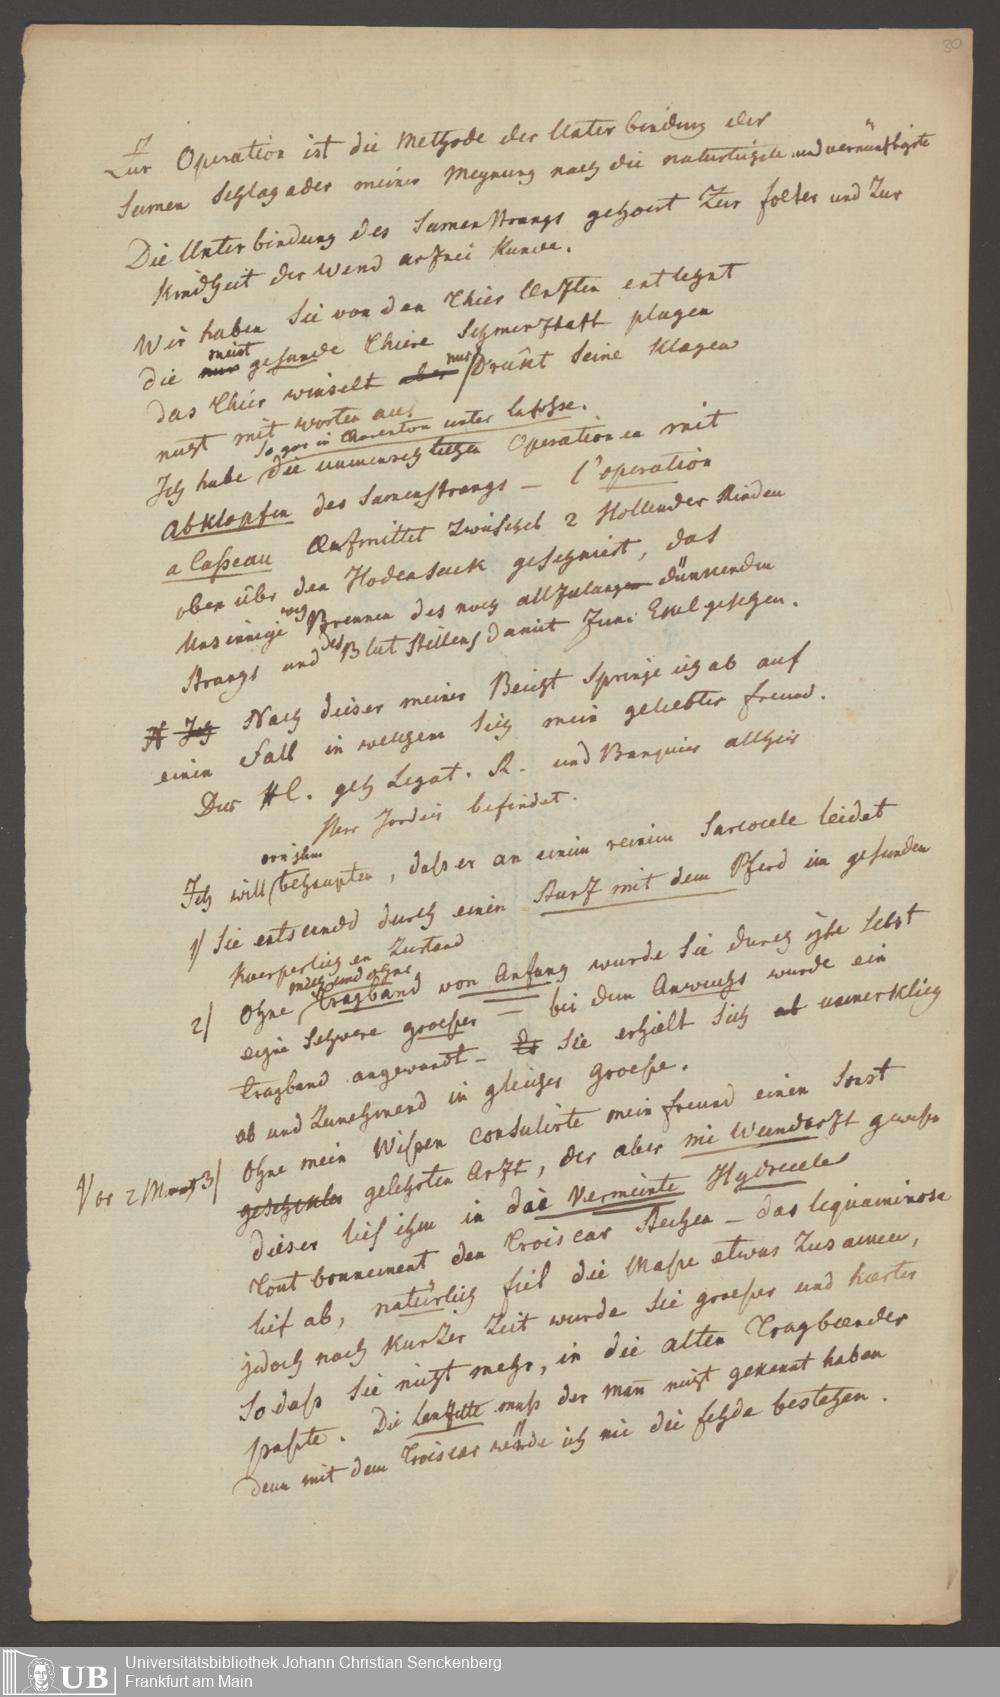 30
Zur Operation ist die Methode der Unterbindung der
Samen Schlagader meiner Meynung nach die natürlichste und vernünftigste
Die Unterbindung des Samenstrangs gehoert Zur folter und Zur
Kindheit der Wend arznei Kunde.
Wir haben Sie von den Thier Ærzten entlehnt
meist
die nur gesunde Thiere Schmerzhaft plagen
das Thier winselt aber nur Drükt Seine Klagen
nicht mit worten aus
So gar in Charenton unter Lafosse.
Ich habe die unmenschlichen Operationen mit
Abklopfen des Samenstrangs — l'operation
a Casseau vermittet zwischen 2 Hollunder Rinden
oben über den Hodensack geschniert, das
Unsinnige Brennen des noch allzulangen dünnenden
Strangs und des Blut Stillens damit zum Ekel gesehen.
N Ich Nach dieser meiner Beicht Springe ich ab auf
einen Fall in welchem Sich mein geliebter freund.
Der H. geh Legat. R. und Banquier allhier
Herr Jordis befindet.
von ihm
Ich will behaupten, dass er an einem reinen Sarcocele leidet
1) Sie entstundt durch einen Sturz mit dem Pferd im gesunden
Koerperlichen Zustand
2) Ohne Tragband von Anfang wurde Sie durch ihre Selbst
eigne Schwere groesser — bei dem Anwuchs wurde ein
Tragband angewandt — Er Sie erhielt Sich ab unmerklich
ab und Zunehmend in gleicher Groesse.
Vor 2 Monat 3) Ohne mein Wissen consulirte mein freund einen Sonst
geschikten gelehrten Arzt, der aber nie Wundarzt gewesen
dieser lies ihm in die Vermeinte Hydrocele
tout bonnement den Troiscar Stechen — das liquaminose
lief ab, natürlich fiel die Masse etwas Zusamen,
jedoch nach Kurzer Zeit wurde Sie groesser und haerter
So dass Sie nicht mehr, in die alten Tragbaender
passte. Die Lanzette muss der Man nicht gekannt haben
denn mit dem Troiscar würde ich nie die fehde bestehen.
UB Universitätsbibliothek Johann Christian Senckenberg
Frankfurt am Main